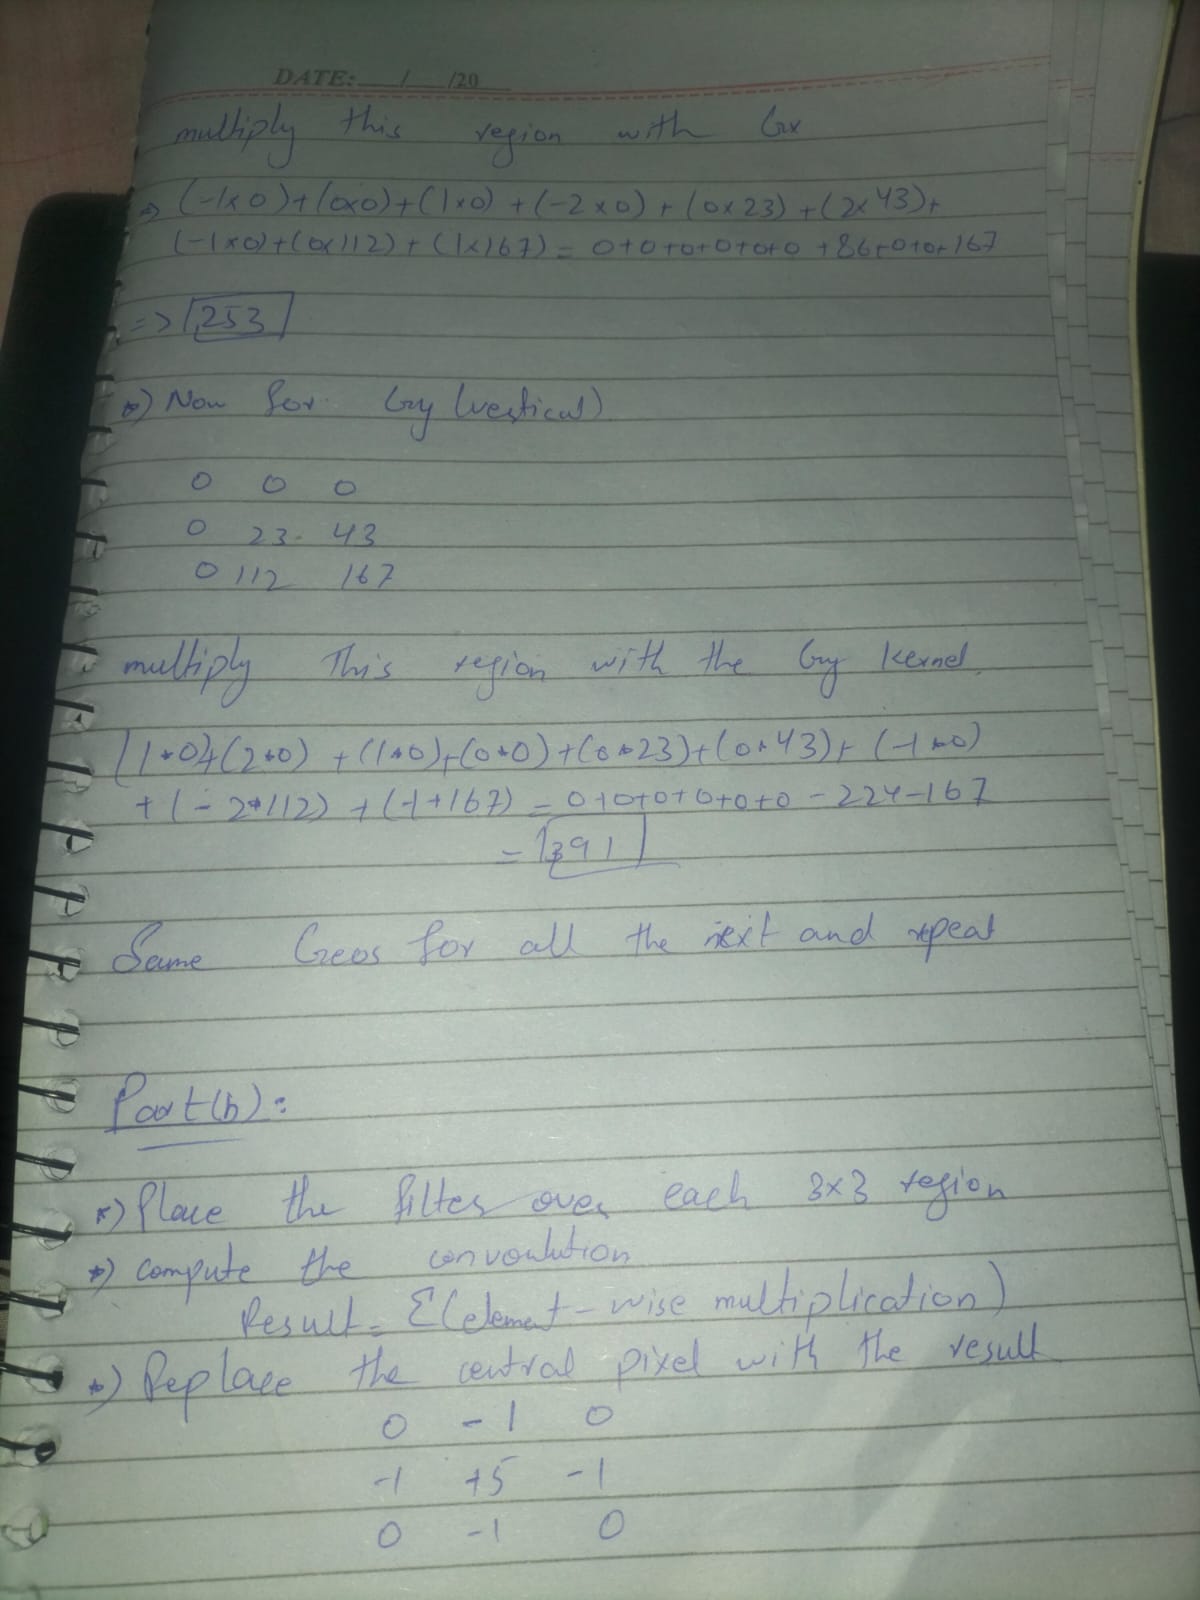 DATE: ___/___/20___
multiply this region with Gx
=> (-1x0)+(0x0)+(1x0)+(-2x0)+(0x23)+(2x43)+
(-1x0)+(0x112)+(1x167)= 0+0+0+0+0+0+86+0+0+167
=> 253
*) Now for Gy (vertical)
0 0 0
0 23 43
0 112 167
multiply This region with the Gy Kernel.
(1*0)+(2*0)+(1*0)+(0*0)+(0*23)+(0*43)+(-1*0)
+(-2*112)+(-1*167)=0+0+0+0+0+0-224-167
= 391
Same Goes for all the next and repeat
Part(b):
*) Place the filter over each 3x3 region
*) compute the convoulution
Result = Σ(element-wise multiplication)
*) Replace the central pixel with the result
0 -1 0
-1 +5 -1
0 -1 0